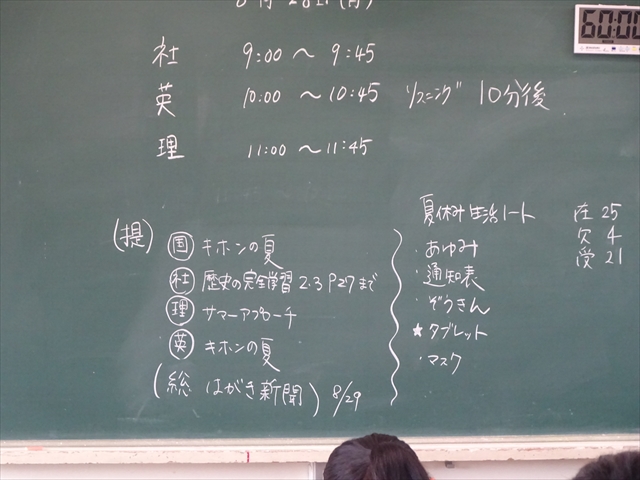 60:00
社 9:00 ～ 9:45
英 10:00 ～ 10:45 リスニング 10分後
理 11:00 ～ 11:45
(提) 国 キホンの夏
社 歴史の完全学習 2.3 P27まで
理 サマーアプローチ
英 キホンの夏
(総 はがき新聞) 8/29
夏休み生活ノート
・あゆみ
・通知表
・ぞうきん
★タブレット
・マスク
在 25
欠 4
受 21